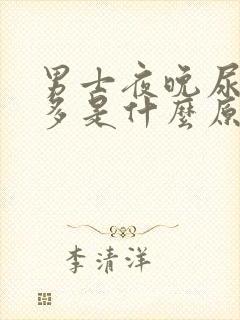 男士夜晚尿
多是什麼原
李清洋